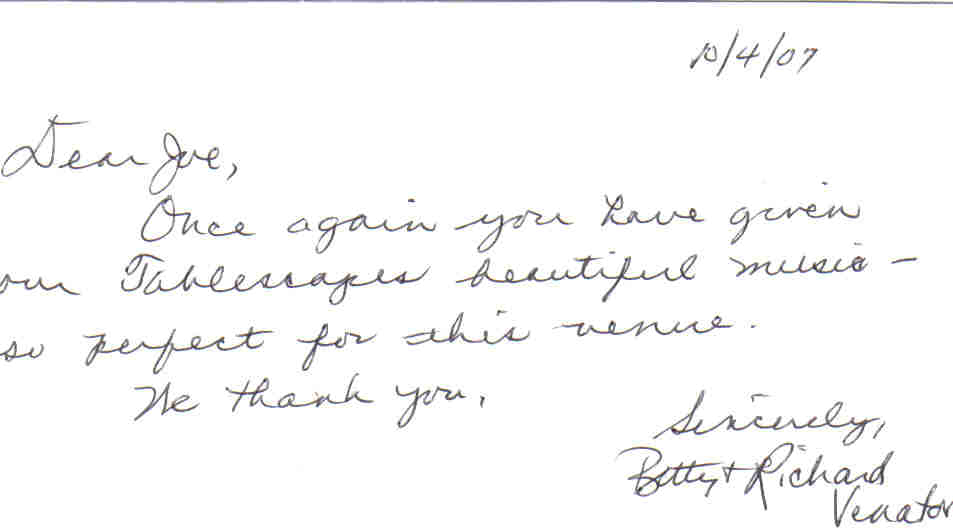 10/4/07
Dear Joe,
Once again you have given
our Tablescapes beautiful music -
so perfect for this venue.
We thank you,
Sincerely,
Betty + Richard
Venator